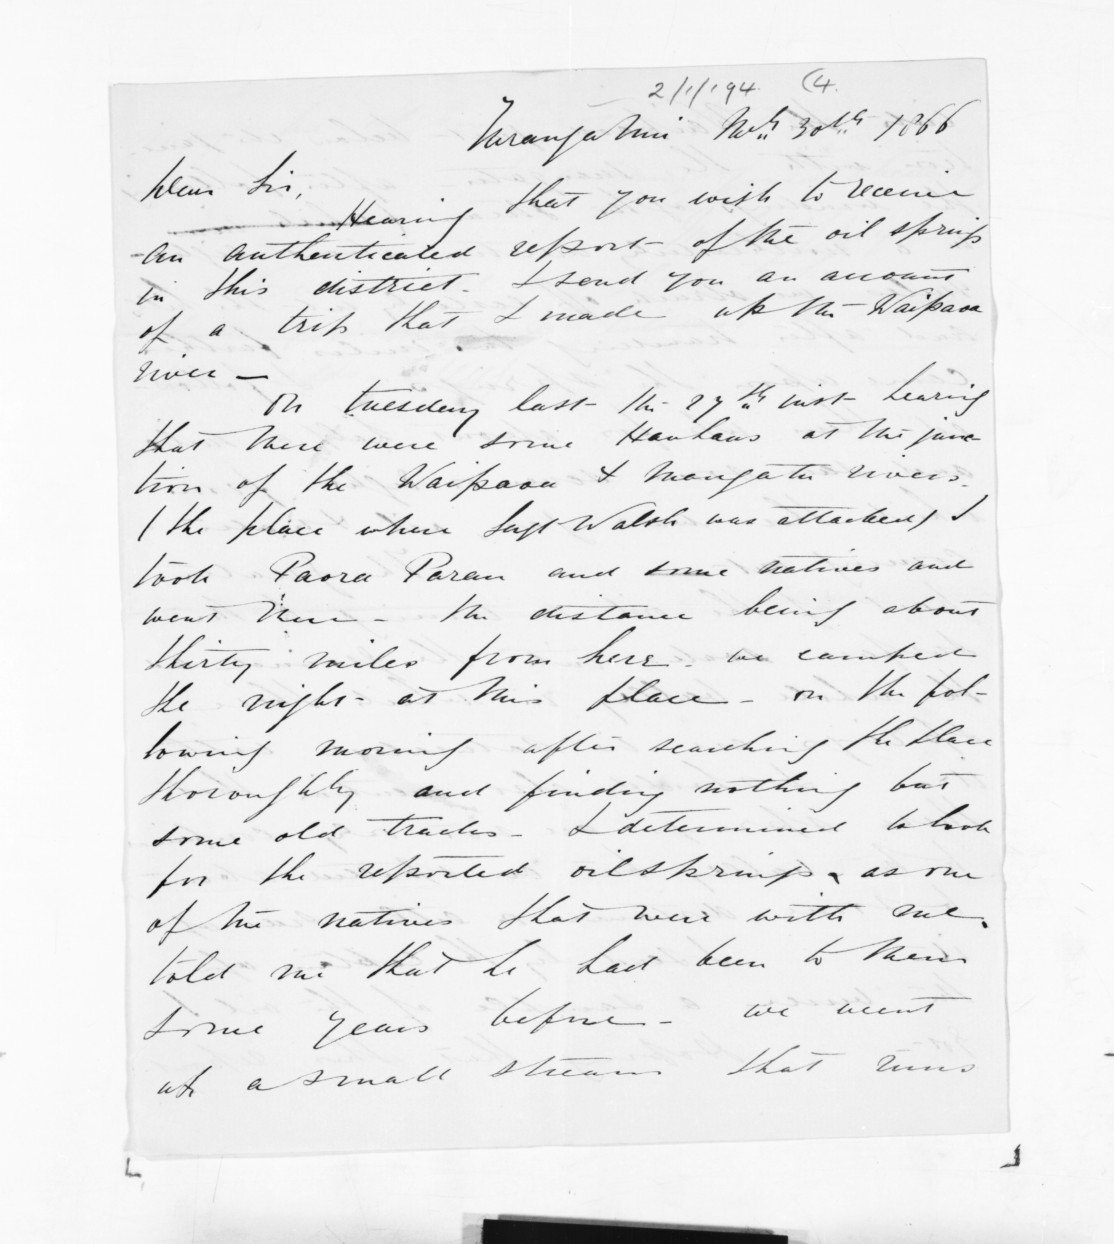 2/1/194. (4.
Turanganui Nov 30th 1866
Dear Sir,
Hearing that you wish to receive
an authenticated report of the oil springs
in this district. I send you an account
of a trip that I made up the Waipaoa
river —
On tuesday last the 27th inst hearing
that there were some Hauhaus at the junc
tion of the Waipaoa & Mangatu rivers.
(the place where Sergt Walsh was attacked) I
took Paora Parau and some natives and
went there — the distance being about
thirty miles from here. we camped
the night at this place — on the fol-
lowing morning after searching the place
thoroughly and finding nothing but
some old tracks — I determined to look
for the reported oil springs, as one
of the natives that were with me,
told me that he had been to them
some years before — we went
up a small stream that runs